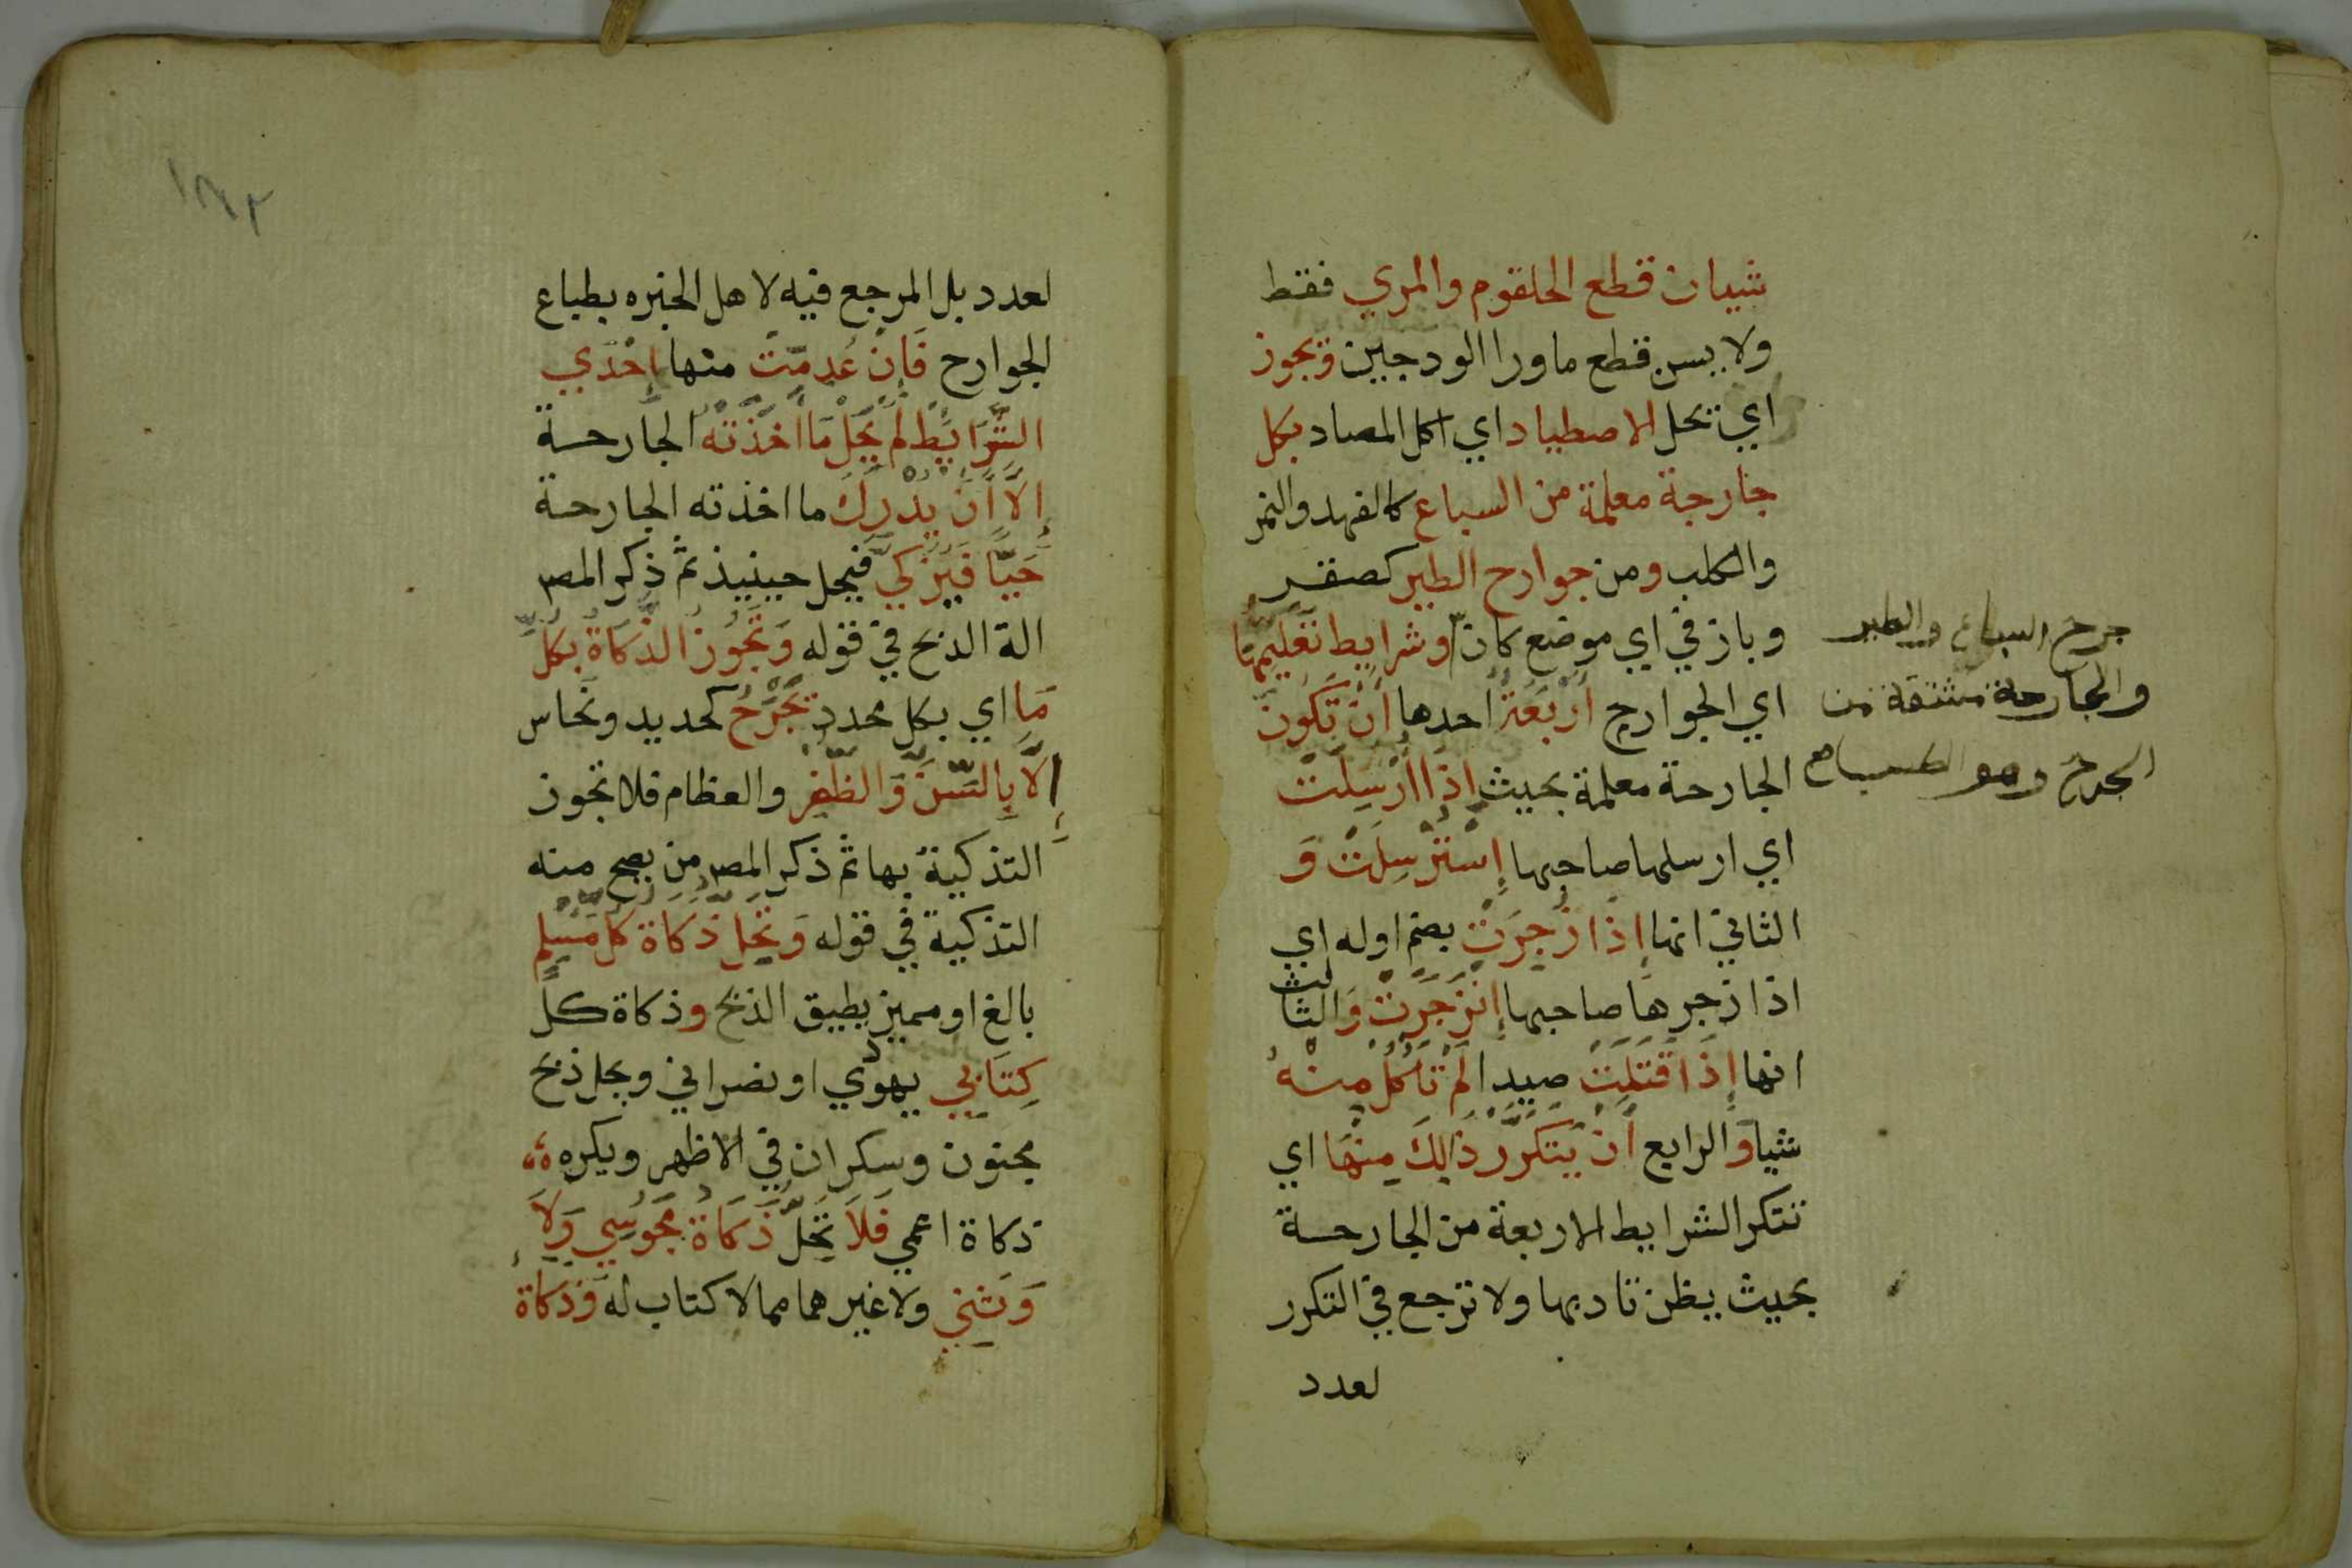 شيان قطع الحلقوم والمري فقط
ولا يسن قطع ما ورا الودجين وتجوز
اي تحل الاصطياد اي اكل المصاد بكل
جارحة معلمة من السباع كالفهد والنمر
والكلب ومن جوارح الطير كصقر
وباز في اي موضع كان وشرايط تعليمها
اي الجوارح اربعة احدها ان تكون
الجارحة معلمة بحيث اذا ارسلت
اي ارسلها صاحبها إسترسلت و
الثاني انها إذا زجرت بضم اوله اي
اذا زجرها صاحبها إنزجرت والثالث
انها إذا قتلت صيدا لم تأكل منه
شيا والرابع أن يتكرر ذلك منها اي
تتكر الشرايط الاربعة من الجارحة
بحيث يظن تادبها ولا ترجع في التكرر
لعدد
جرح السباع والطير
والجارحة مشتقة من
الجرح وهو
١٨٢
لعدد بل المرجع فيه لاهل الخبره بطباع
الجوارح فإن عدمت منها إحدي
الشرايط لم يحل ما أخذته الجارحة
إلا أن يدرك ما اخذته الجارحة
حيا فيزكي فيحل حينيذ ثم ذكر المص
الة الذبح في قوله وتجوز الذكاة بكل
ما اي بكل محدد تجرح كحديد ونحاس
إلا بالسن والظفر والعظام فلا تجوز
التذكية بها ثم ذكر المص من يصح منه
التذكية في قوله وتحل ذكاة كل مسلم
بالغ او مميز يطيق الذبح وذكاة كل
كتابي يهودي او نصراني ويحل ذبح
مجنون وسكران في الاظهر ويكره
ذكاة اعمي فلا تحل ذكاة مجوسي ولا
وثني ولا غيرهما مما لا كتاب له وذكاة